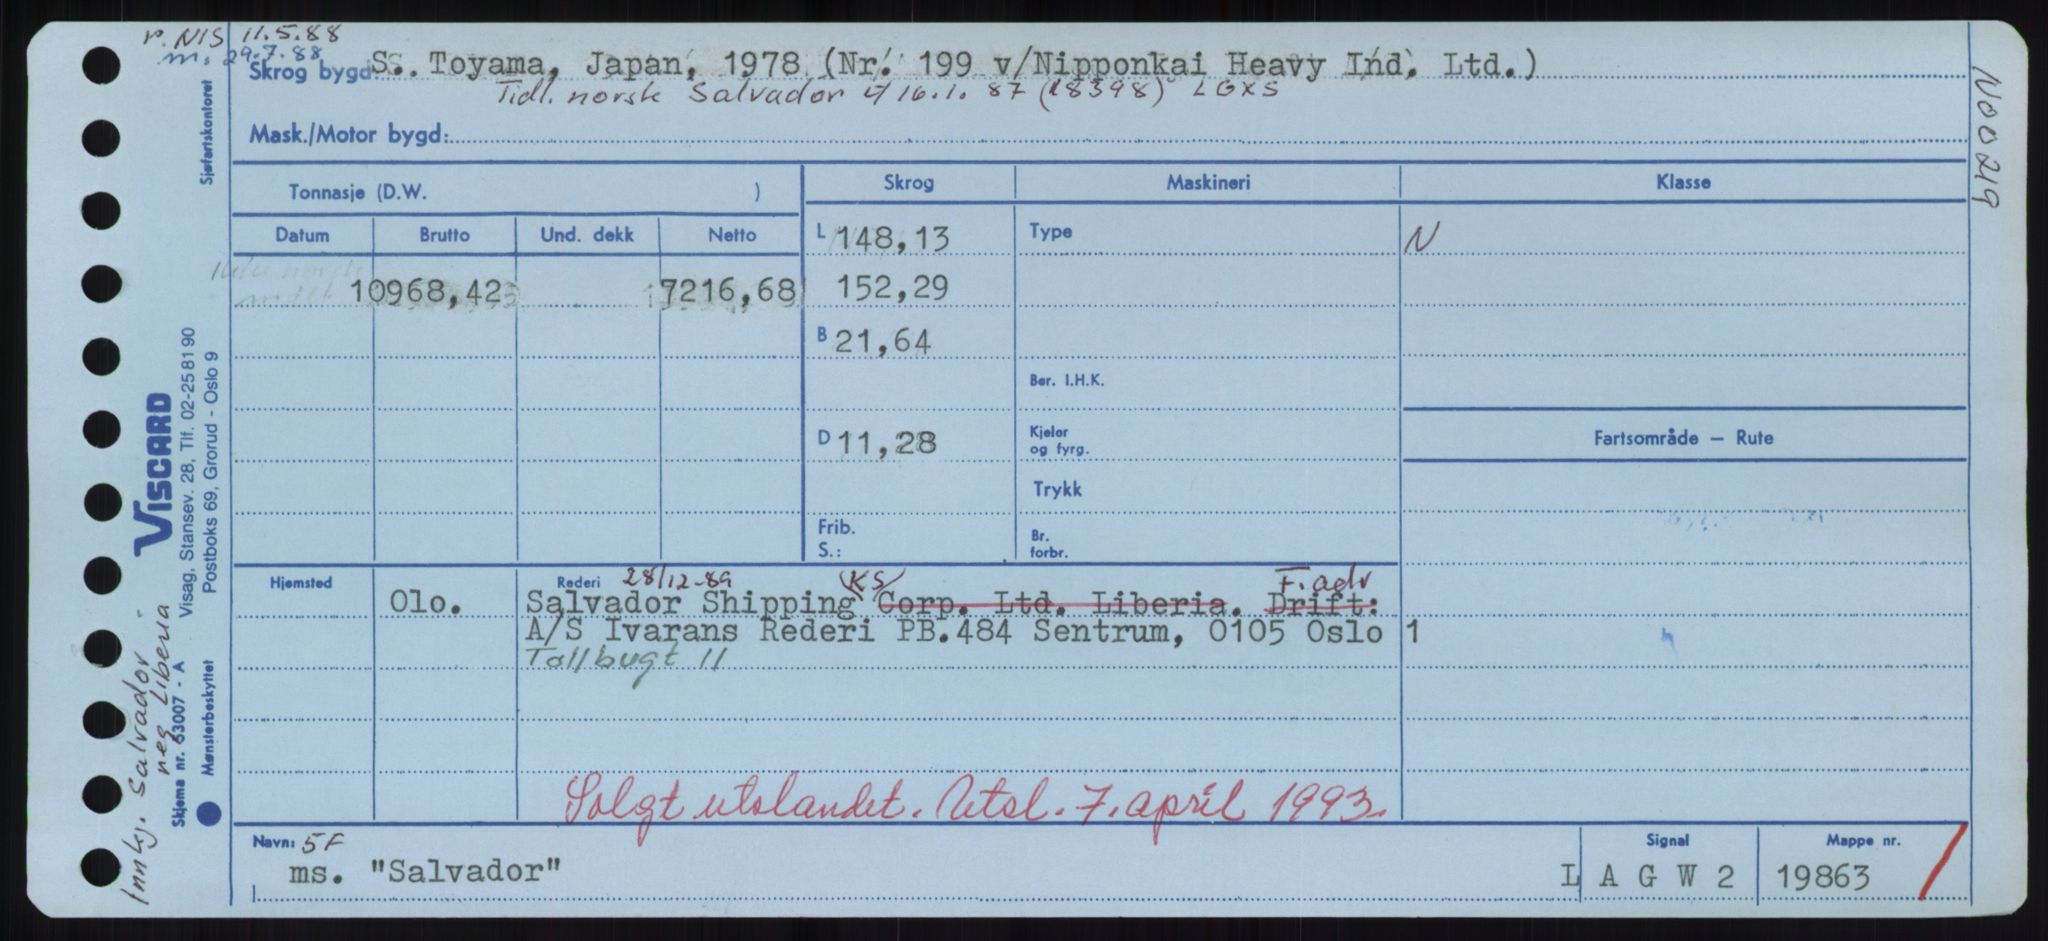 r. NIS 11.5.88
m. 29.7.88
Skrog bygd S. Toyama, Japan, 1978 (Nr. 199 v/Nipponkai Heavy Ind. Ltd.)
Tidl. norsk Salvador 16.1.87 (18398) LGXS
Mask./Motor bygd:
N00219
Sjøfartskontoret
Tonnasje (D.W. )
Skrog
Maskineri
Klasse
Datum Brutto Und. dekk Netto
L 148,13
Type
N
10968,42 7216,68
152,29
B 21,64
Ber. I.H.K.
D 11,28
Kjeler
og fyrg.
Fartsområde – Rute
Trykk
Frib.
S.:
Br.
forbr.
Hjemsted
Rederi 28/12-89 KS F. adr
Olo.
Salvador Shipping Corp. Ltd. Liberia. Drift:
A/S Ivarans Rederi PB.484 Sentrum, 0105 Oslo 1
Tollbugt 11
Solgt utlandet. Utsl. 7. april 1993.
Navn: 5F
ms. "Salvador"
Signal
L A G W 2
Mappe nr.
19863
VISCARD
Visag, Stansev. 28, Tlf. 02-25 81 90
Postboks 69, Grorud - Oslo 9
Skjema nr. 63007 - A
Mønsterbeskyttet
Innkj. Salvador
neg Liberia